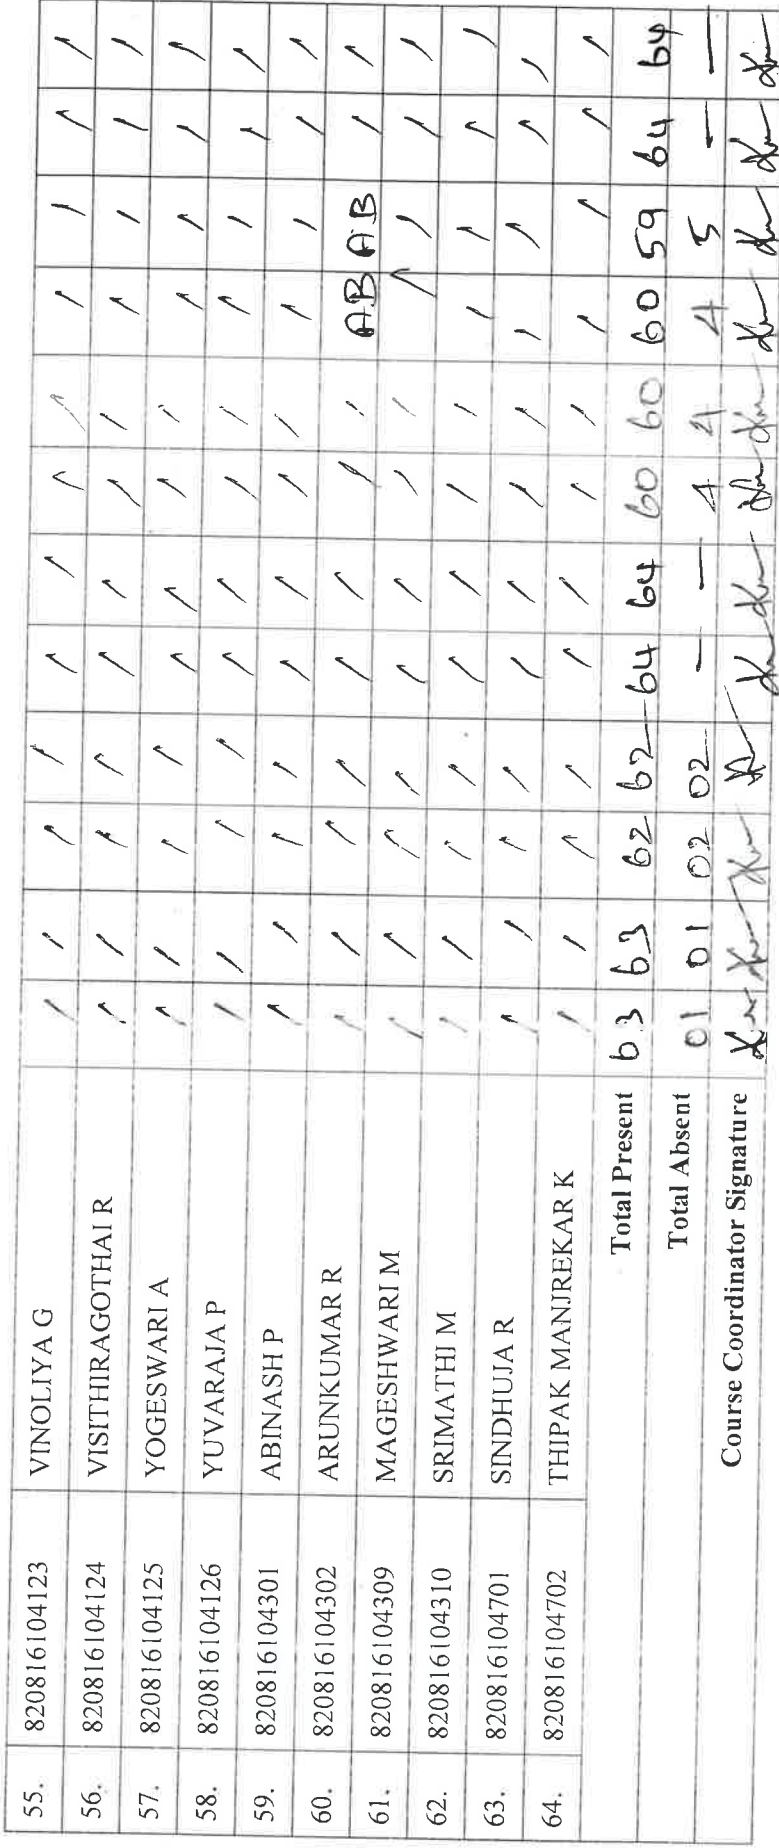 55. 820816104123 VINOLIYA G
56. 820816104124 VISITHIRAGOTHAI R
57. 820816104125 YOGESWARI A
58. 820816104126 YUVARAJA P
59. 820816104301 ABINASH P
60. 820816104302 ARUNKUMAR R AB AB
61. 820816104309 MAGESHWARI M
62. 820816104310 SRIMATHI M
63. 820816104701 SINDHUJA R
64. 820816104702 THIPAK MANJREKAR K
Total Present 63 63 62 62 64 64 60 60 60 59 64 64
Total Absent 01 01 02 02 — — 4 4 4 5 — —
Course Coordinator Signature